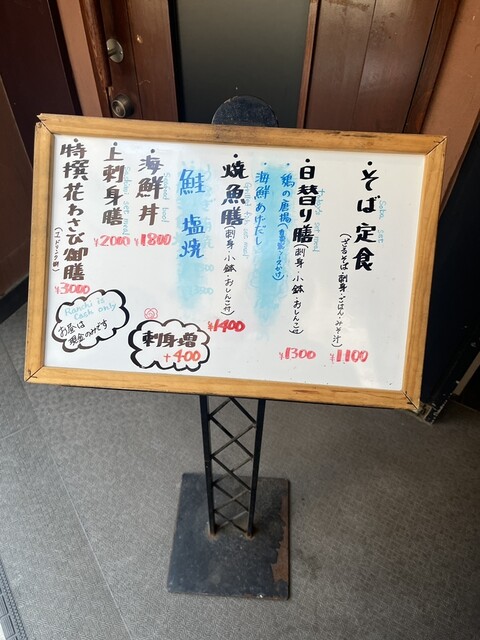 ・そば定食
(ざるそば・刺身・ごはん・みそ汁)
¥1100
・日替り膳
(刺身・小鉢・おしんこ付)
鶏の唐揚
海鮮あげだし
¥1300
・焼魚膳
(刺身・小鉢・おしんこ付)
鮭 塩焼
¥1400
・海鮮丼
¥1800
・上刺身膳
¥2000
・特撰花わさび御膳
¥3000
刺身増
+400
Ranchi is
cash only
お昼は
現金のみです